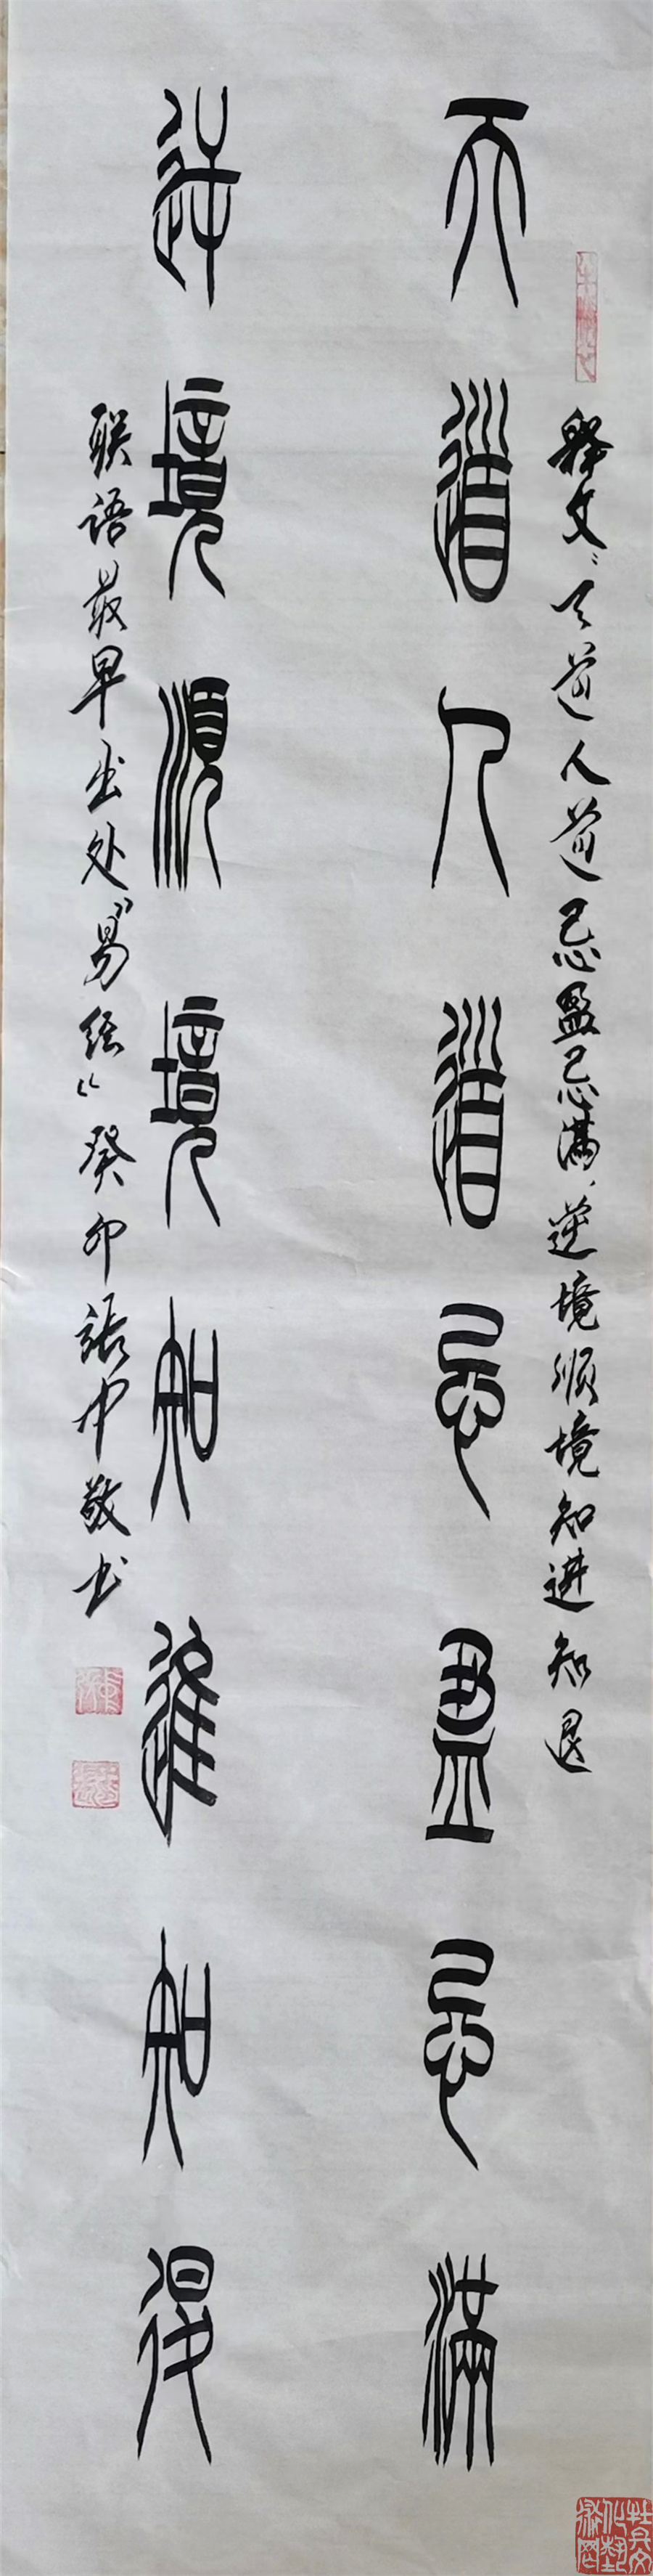 天道人道忌盈忌满
逆境顺境知进知退
释文：天道人道忌盈忌满，逆境顺境知进知退
联语最早出处《易经》癸卯张中敬书